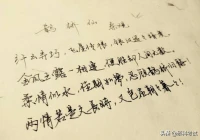 鹊桥仙 秦观
纤云弄巧，飞星传恨，银汉迢迢暗度。
金风玉露一相逢，便胜却人间无数。
柔情似水，佳期如梦，忍顾鹊桥归路！
两情若是久长时，又岂在朝朝暮暮！